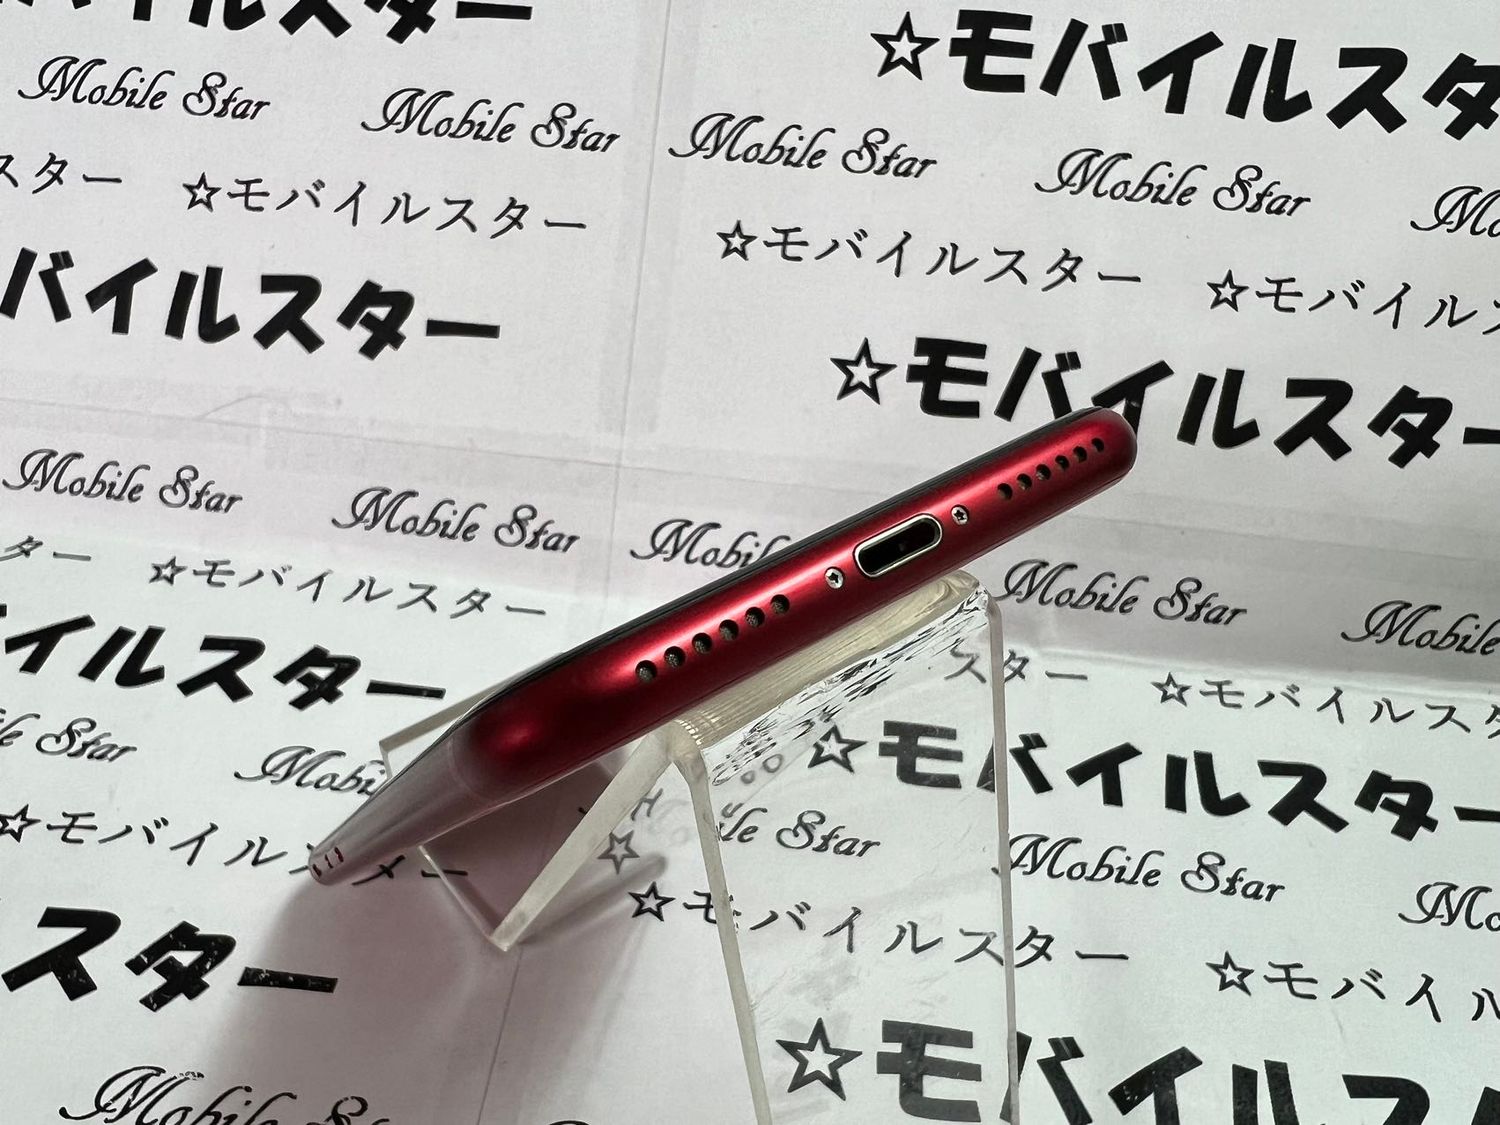 バイルスター
☆モバイルスタ
Mobile Star Mobile Star Mobile Star Mobile Star Mo
スター ☆モバイルスター ☆モバイルスター ☆モバイル
バイルスター ☆モバイルスター
Mobile Star Mobile Star Mobil Mobile Star Mobile
ター ☆モバイルスター スター ☆モバイルスタ
イルスター ☆モバイルスター
le Star Mobi ile Star Mobile Star Mo
☆モバイル ☆モバイルスター ☆モバイル
スター ☆モバイルス
Mobile